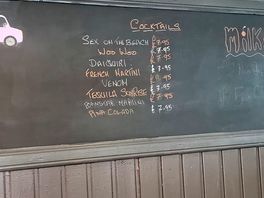 COCKTAILS
SEX ON THE BEACH £7.95
WOO WOO £7.95
DAIQUIRI £7.95
FRENCH MARTINI £7.95
VENOM £7.95
TEQUILA SUNRISE £7.95
PORNSTAR MARTINI £7.95
PINA COLADA £7.95
MILK